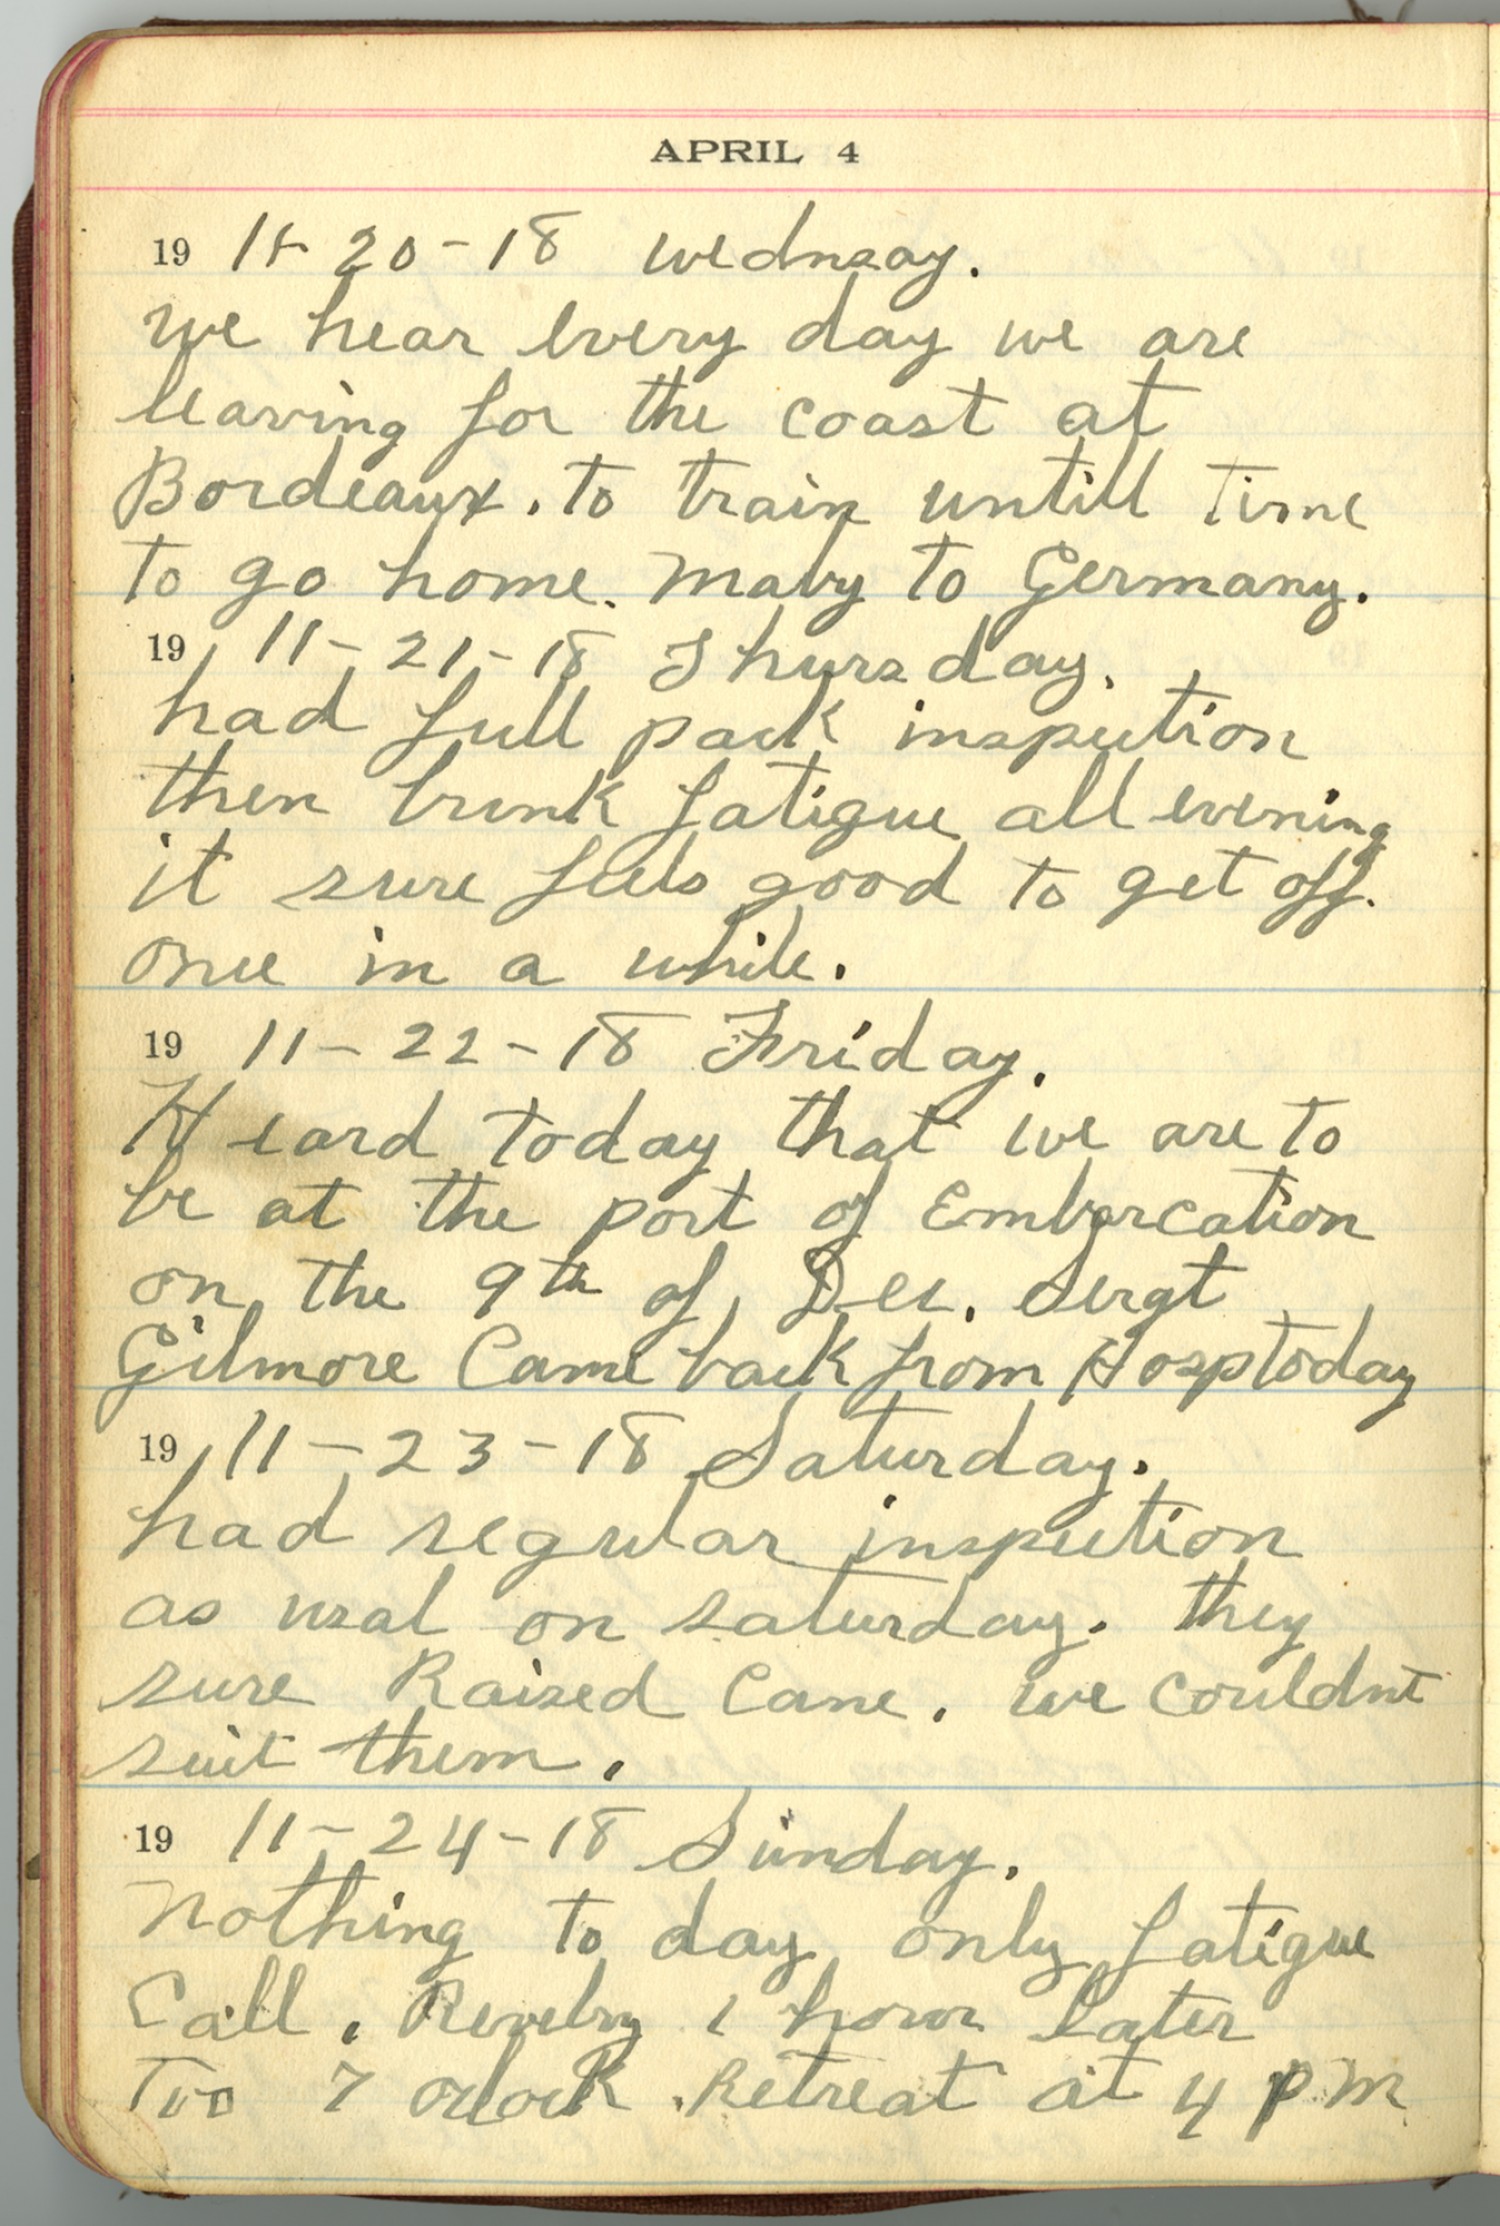 APRIL 4
19 11-20-18 Wednsay.
we hear every day we are
leaving for the coast at
Bordeaux. to train untill time
to go home. Maby to Germany.
19 11-21-18 Thursday.
had full pack inspection
then bunk fatigue all evening
it sure feels good to get off.
once in a while.
19 11-22-18 Friday.
Heard today that we are to
be at the port of Embarcation
on the 9th of Dec. Sergt
Gilmore Came back from Hosp today
19 11-23-18 Saturday.
had regular inspection
as usal on saturday. they
sure Raised Cane. we couldnt
suit them.
19 11-24-18 Sunday.
Nothing to day only fatigue
Call. Revelry 1 hour later
Too 7 oclock. Retreat at 4 PM